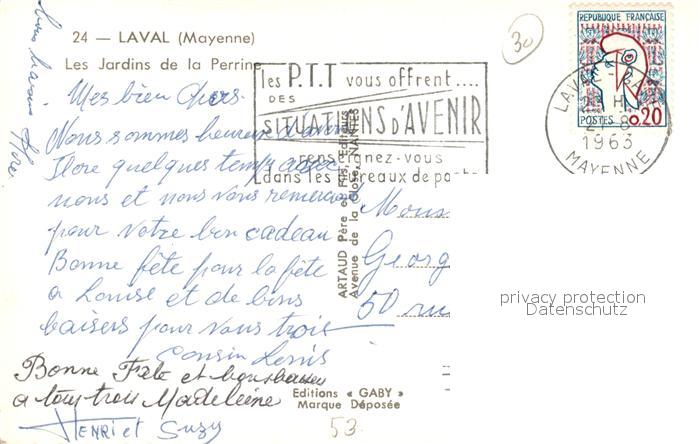 24 — LAVAL (Mayenne)
Les Jardins de la Perrine
30
les P.T.T vous offrent....
DES
SITUATIONS D'AVENIR
renseignez-vous
dans les bureaux de poste
REPUBLIQUE FRANÇAISE
POSTES 0,20
LAVAL
H
8
1963
MAYENNE
Mes bien chers
Nous sommes heureux d'avoir
Flore quelques temps avec
nous et nous vous remercions
pour votre bon cadeau
Bonne fête pour la fête
a Louise et de bons
baisers pour vous trois
Cousin Louis
Bonne Fête et bons baisers
a tous trois Madeleine
HENRI et Suzy
bons baisers Flore
ARTAUD Père et Fils, Editeurs
Avenue de la Close, NANTES
Mons
Georg
50 ru
privacy protection
Datenschutz
Editions « GABY »
Marque Déposée
53